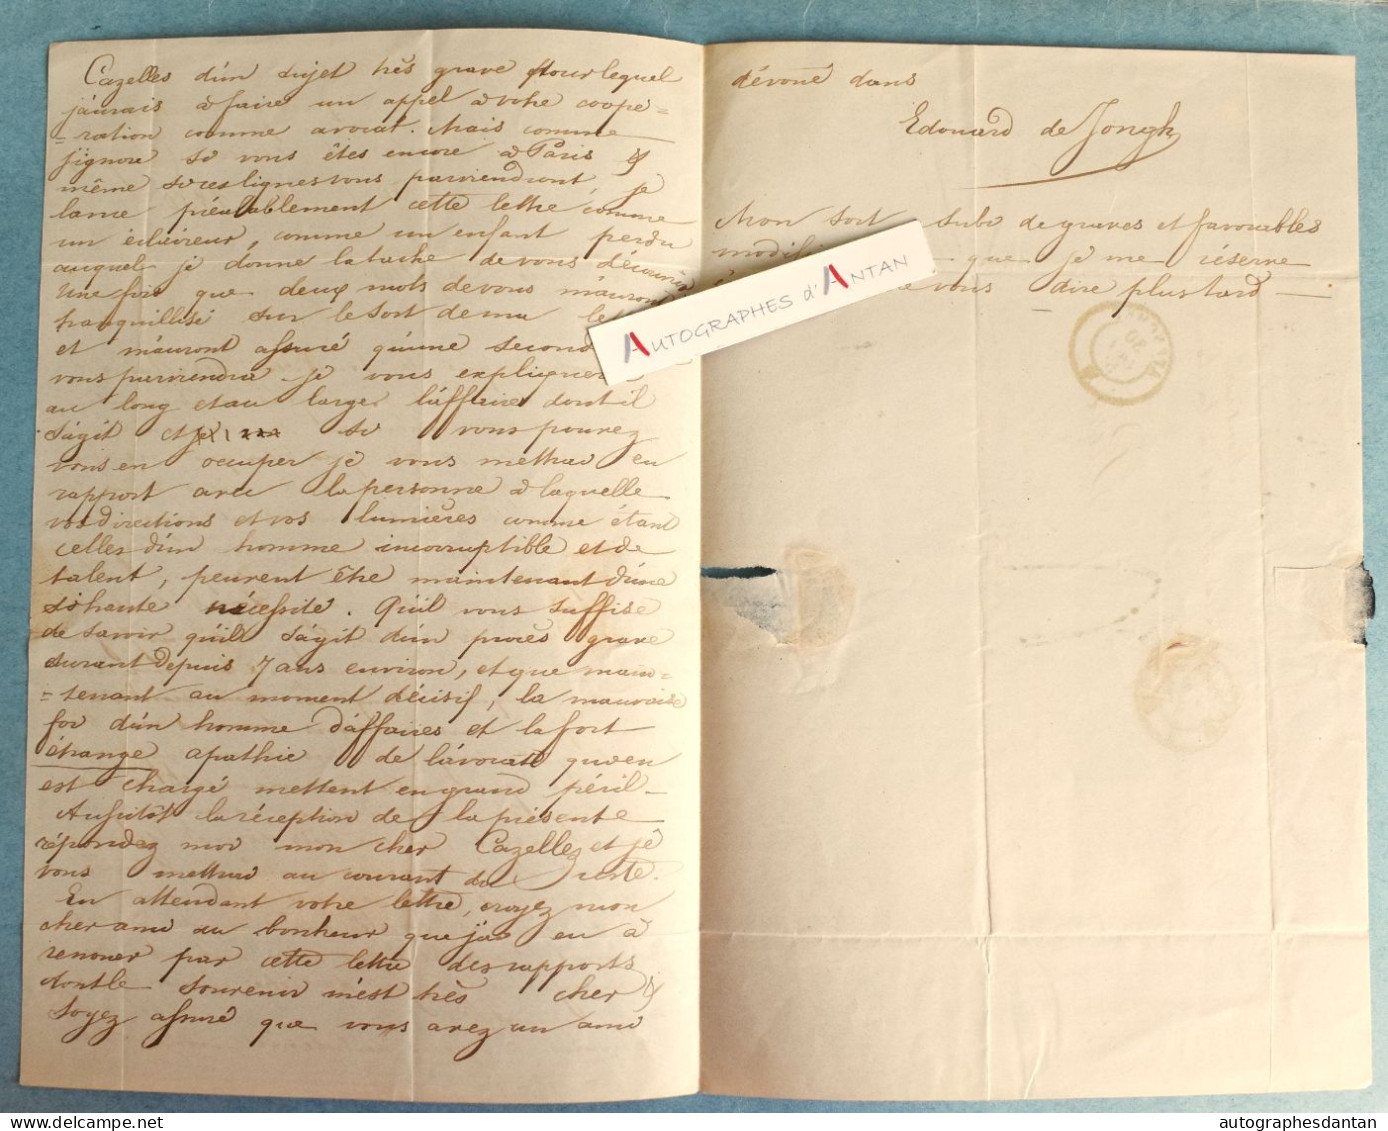 Cazelles d'un sujet très grave pour lequel
j'aurais à faire un appel à votre coopé=
=ration comme avocat. Mais comme
j'ignore si vous êtes encore à Paris &
même si ces lignes vous parviendront, je
lance préalablement cette lettre, comme
un éclaireur, comme un enfant perdu
auquel je donne la tache de vous découvrir
Une fois que deux mots de vous m'auront
tranquillisé sur le sort de ma
et m'auront assuré qu'une
vous parviendra je vous
au long et au large l'affaire dont il
s'agit et si vous pouvez
vous en occuper je vous mettrai en
rapport avec la personne à laquelle
vos directions et vos lumières comme étant
celles d'un homme incorruptible et de
talent, peuvent être maintenant d'une
nécessité. Qu'il vous suffise
de savoir qu'il s'agit d'un procès grave
durant depuis 7 ans environ, et que main=
=tenant au moment décisif, la mauvaise
foi d'un homme d'affaires et la fort
étrange apathie de l'avocat qui en
est chargé mettent en grand péril —
Aussitôt la réception de la présente
répondez moi mon cher Cazelles et je
vous mettrai au courant du reste.
En attendant votre lettre, croyez mon
cher ami au bonheur que j'ai eu à
renouer par cette lettre des rapports
dont le souvenir m'est très cher &
soyez assuré que vous avez un ami
dévoué dans
Edouard de Jongh
Mon sort a subi de graves et favorables
que je me réserve
vous dire plus tard —
AUTOGRAPHES d'ANTAN
autographesdantan.com
autographesdantan